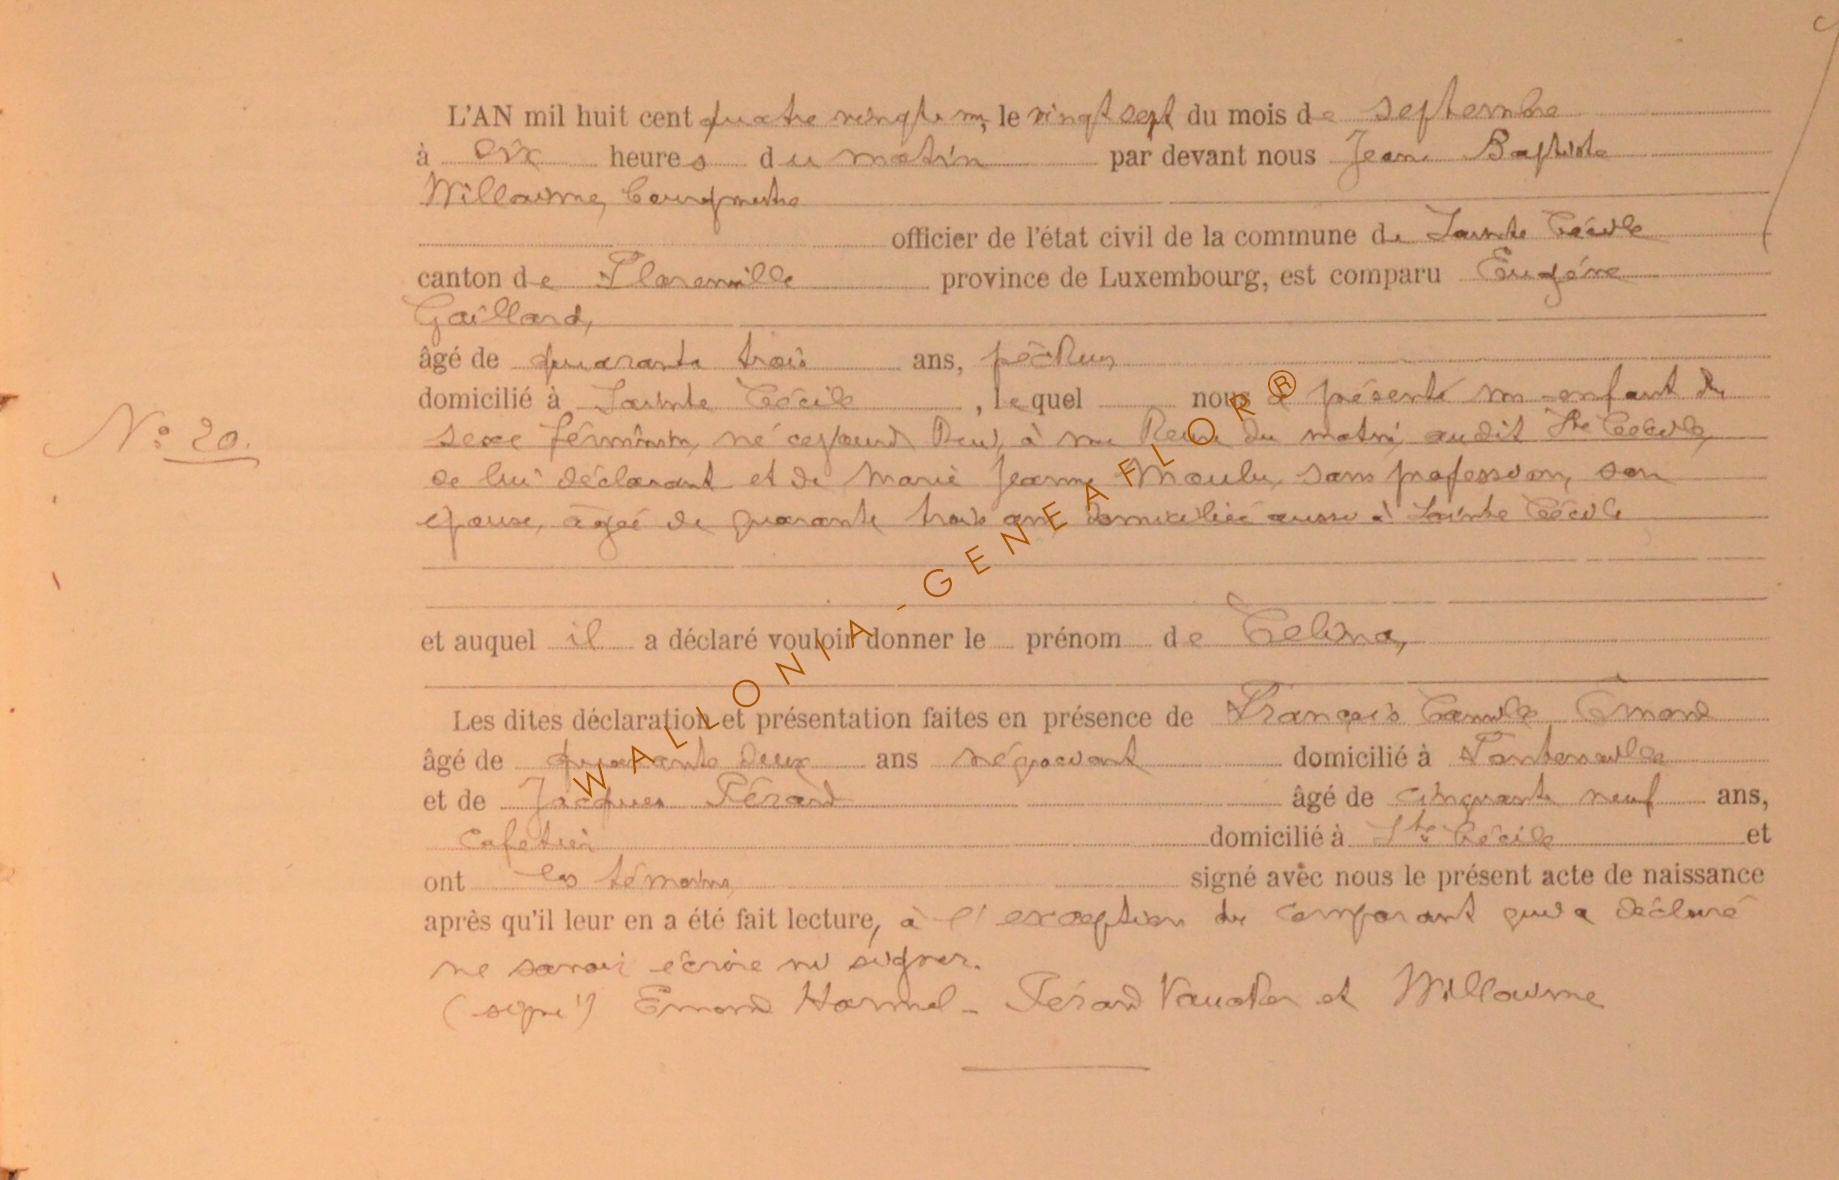 L'AN mil huit cent quatre vingt un, le vingt sept du mois de septembre
à dix heures du matin par devant nous Jean Baptiste
Willaume, bourgmestre
officier de l'état civil de la commune de Sainte Cécile
canton de Florenville province de Luxembourg, est comparu Eugène
Gaillard,
âgé de quarante trois ans, pêcheur
domicilié à Sainte Cécile, lequel nous a présenté un enfant du
N° 20.
sexe féminin, né ce jourd'hui, à une heure du matin, audit Ste Cécile,
de lui déclarant et de Marie Jeanne sans profession, son
épouse, âgée de quarante trois ans domiciliée aussi à Sainte Cécile
et auquel il a déclaré vouloir donner le prénom de Celina,
Les dites déclaration et présentation faites en présence de François Camille Emond
âgé de quarante deux ans négociant domicilié à Fontenoille
et de Jacques Pérard âgé de cinquante neuf ans,
cafetier domicilié à Ste Cécile et
ont les témoins, signé avec nous le présent acte de naissance
après qu'il leur en a été fait lecture, à l'exception du comparant qui a déclaré
ne savoir écrire ni signer.
(signé) Emond Hannel - Pérard et Willaume
WALLONIA-GENEAFLOR®